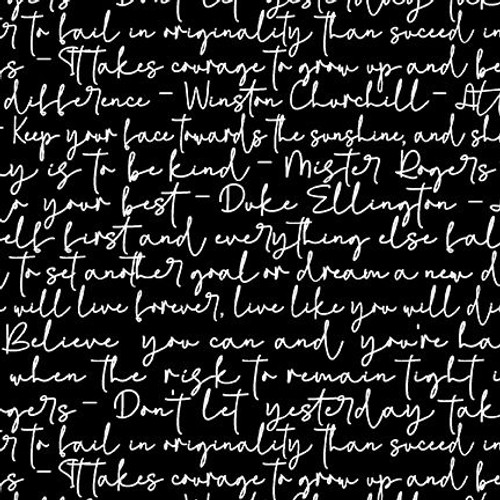 Don't let yesterday tak
r to fail in originality than suceed in
s – It takes courage to grow up and be
difference – Winston Churchill – At
- Keep your face towards the sunshine, and sh
y is to be kind – Mister Rogers
o your best – Duke Ellington –
elf first and everything else fal
to set another goal or dream a new d
will live forever, live like you will di
Believe you can and you're ha
when the risk to remain tight i
gers – Don't let yesterday tak
r to fail in originality than suceed in
s – It takes courage to grow up and be